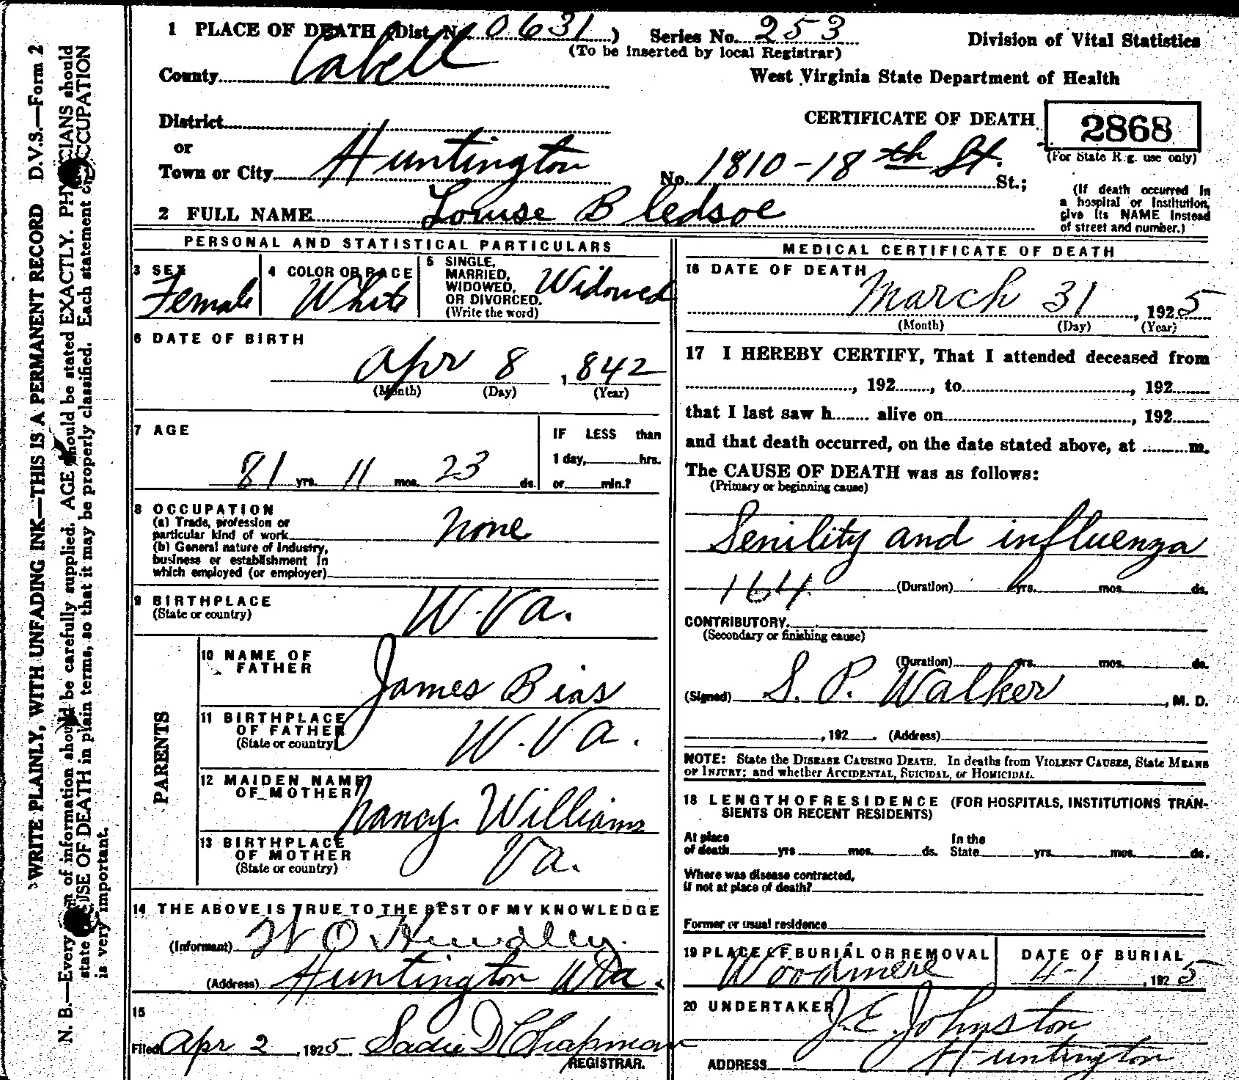 1 PLACE OF DEATH (Dist. No. 0631) Series No. 253
(To be inserted by local Registrar)
Division of Vital Statistics
County Cabell
West Virginia State Department of Health
District
or
Town or City Huntington
CERTIFICATE OF DEATH
2868
(For State Reg. use only)
No. 1810-18th St. St.;
(If death occurred in a hospital or institution, give its NAME instead of street and number.)
2 FULL NAME Louise Bledsoe
PERSONAL AND STATISTICAL PARTICULARS
3 SEX Female
4 COLOR OR RACE White
5 SINGLE, MARRIED, WIDOWED, OR DIVORCED. (Write the word) Widowed
6 DATE OF BIRTH
Apr 8, 842
(Month) (Day) (Year)
7 AGE
81 yrs. 11 mos. 23 ds.
IF LESS than
1 day, hrs.
or min.?
8 OCCUPATION
(a) Trade, profession or
particular kind of work none
(b) General nature of industry,
business or establishment in
which employed (or employer)
9 BIRTHPLACE
(State or country) W. Va.
PARENTS
10 NAME OF FATHER James Bias
11 BIRTHPLACE OF FATHER
(State or country) W. Va.
12 MAIDEN NAME OF MOTHER Nancy Williams
13 BIRTHPLACE OF MOTHER
(State or country) Va.
14 THE ABOVE IS TRUE TO THE BEST OF MY KNOWLEDGE
(Informant) W O
(Address) Huntington WVa.
15
Filed Apr 2, 1925 Sadie D Chapman
REGISTRAR.
MEDICAL CERTIFICATE OF DEATH
16 DATE OF DEATH
March 31, 1925
(Month) (Day) (Year)
17 I HEREBY CERTIFY, That I attended deceased from
, 192 , to , 192
that I last saw h alive on , 192
and that death occurred, on the date stated above, at m.
The CAUSE OF DEATH was as follows:
(Primary or beginning cause)
Senility and influenza
164 (Duration) yrs. mos. ds.
CONTRIBUTORY.
(Secondary or finishing cause)
(Duration) yrs. mos. ds.
(Signed) S. P. Walker, M. D.
, 192 (Address)
NOTE: State the DISEASE CAUSING DEATH. In deaths from VIOLENT CAUSES, State MEANS
OF INJURY; and whether ACCIDENTAL, SUICIDAL, or HOMICIDAL.
18 LENGTH OF RESIDENCE (FOR HOSPITALS, INSTITUTIONS TRAN-
SIENTS OR RECENT RESIDENTS)
At place of death yrs mos. ds. In the State yrs. mos. ds.
Where was disease contracted,
if not at place of death?
Former or usual residence
19 PLACE OF BURIAL OR REMOVAL DATE OF BURIAL
Woodmere 4-1, 1925
20 UNDERTAKER J. E. Johnston
ADDRESS Huntington
WRITE PLAINLY, WITH UNFADING INK—THIS IS A PERMANENT RECORD D.V.S.—Form 2
N. B.—Every item of information should be carefully supplied. AGE should be stated EXACTLY. PHYSICIANS should
state CAUSE OF DEATH in plain terms, so that it may be properly classified. Each statement of OCCUPATION
is very important.